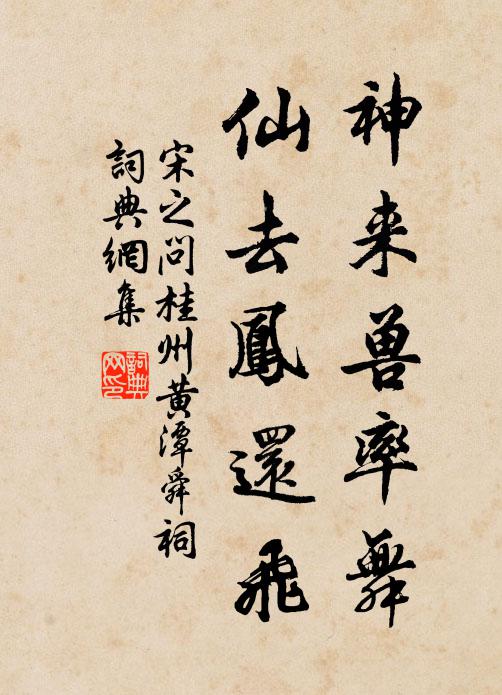 神来兽率舞
仙去鳳還飛
宋之问桂州黄潭舜祠
詞典網集
詞典网印